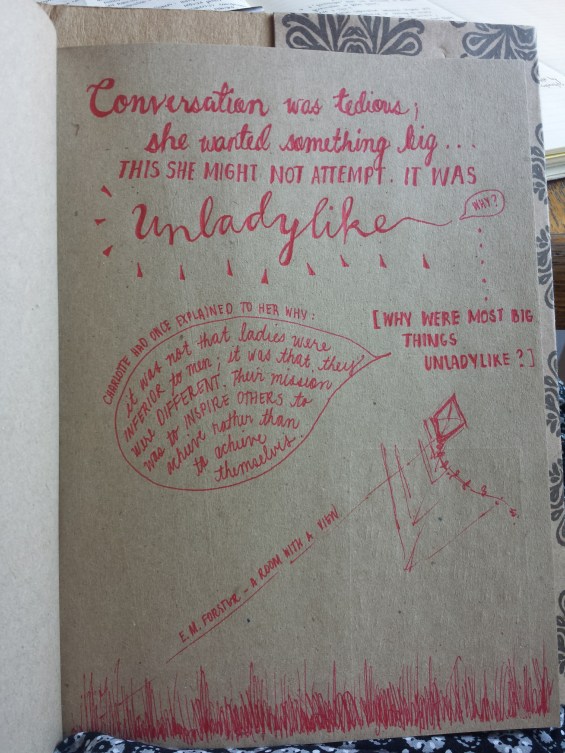 Conversation was tedious;
she wanted something big...
THIS SHE MIGHT NOT ATTEMPT. IT WAS
Unladylike
WHY?
[WHY WERE MOST BIG
THINGS
UNLADYLIKE?]
CHARLOTTE HAD ONCE EXPLAINED TO HER WHY:
it was not that ladies were
INFERIOR to men; it was that they
were DIFFERENT. Their mission
was to INSPIRE OTHERS to
achieve rather than
to achieve
themselves.
E.M. FORSTER - A ROOM WITH A VIEW